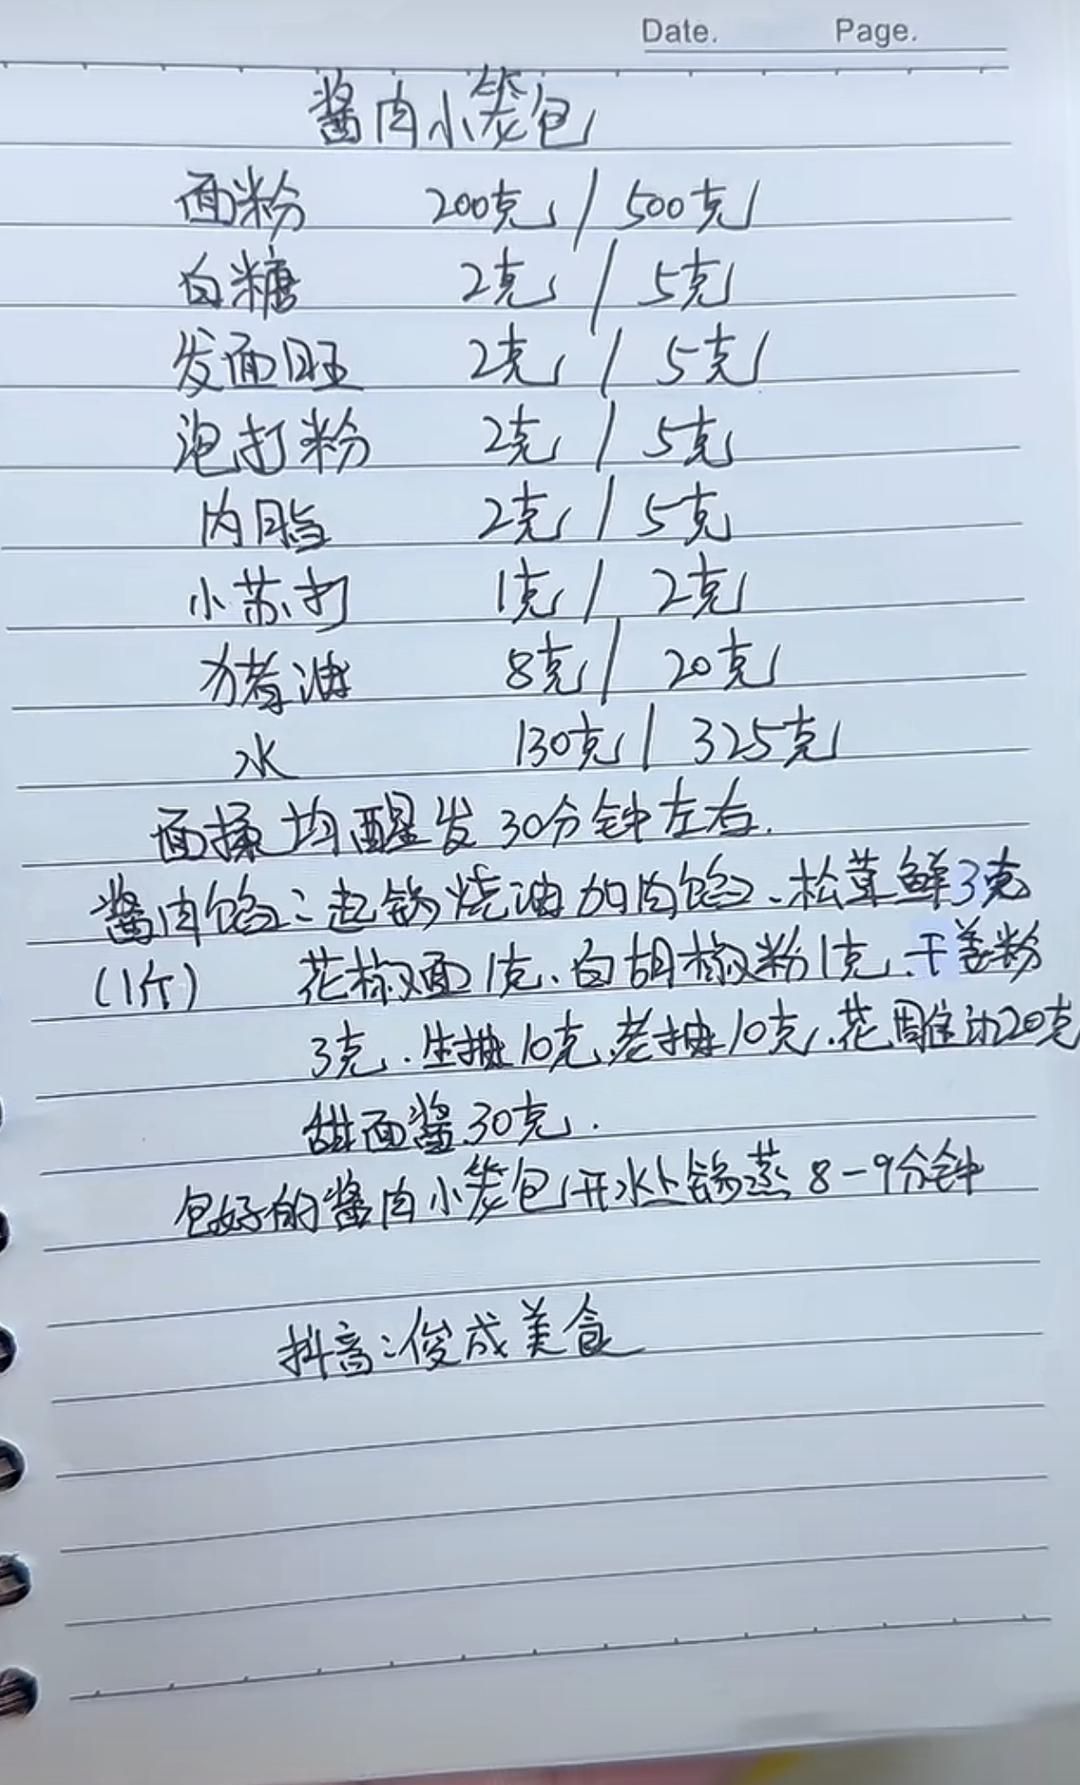 Date. Page.
酱肉小笼包
面粉 200克/500克
白糖 2克/5克
发面旺 2克/5克
泡打粉 2克/5克
内脂 2克/5克
小苏打 1克/2克
猪油 8克/20克
水 130克/325克
面揉均醒发30分钟左右.
酱肉馅:起锅烧油加肉馅、松茸鲜3克
(1斤) 花椒面1克、白胡椒粉1克、干姜粉
3克、生抽10克、老抽10克、花雕酒20克
甜面酱30克.
包好的酱肉小笼包开水上锅蒸8-9分钟
抖音:俊成美食